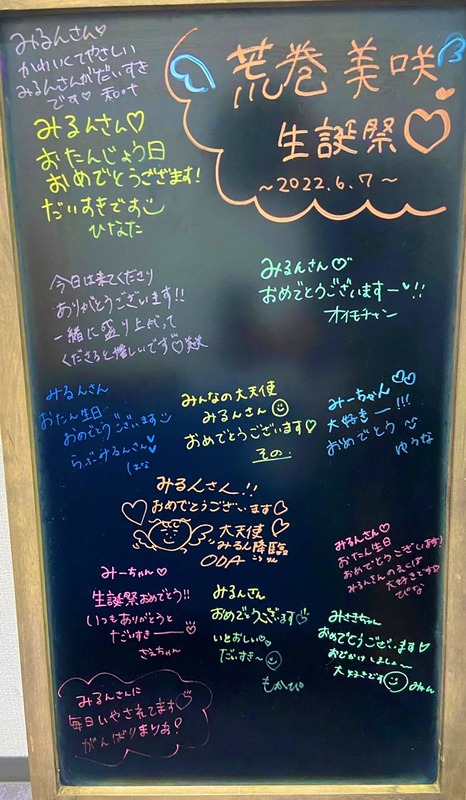 みるんさん♡
かわいくてやさしい
みるんさんがだいすき
です♡ 和叶
荒巻 美咲
生誕祭♡
～2022.6.7～
みるんさん♡
おたんじょう日
おめでとうござます!
だいすきです
ひなた
今日は来てくださり
ありがとうございます!!
一緒に盛り上がって
くださると嬉しいです♡
みるんさん♡
おめでとうございますー♥!!
オイモチャン
みるんさん
おたん生日
おめでとうございます
らぶみるんさん♥
はな
みんなの大天使
みるんさん
おめでとうございます♡
その.
みーちゃん♡♡
大好きー!!!
おめでとう
ゆうな
みるんさん!!
おめでとうございます♡
大天使
みるん降臨
こうりん
ODA
みるんさん♡
おたん生日
おめでとうございます!
みるんさんのえくぼ
大好きです♡
ぴな
みーちゃん♡
生誕祭おめでとう!!
いつもありがとう
だいすきー♡
さえちゃん
みるんさん
おめでとうございます♡
いとおしい♡
だいすき～
もかぴ
みさきちゃん
おめでとうございます♡
おでかけしましょ～
大好きです
みりん
みるんさんに
毎日いやされてます♡
がんばりまりお!